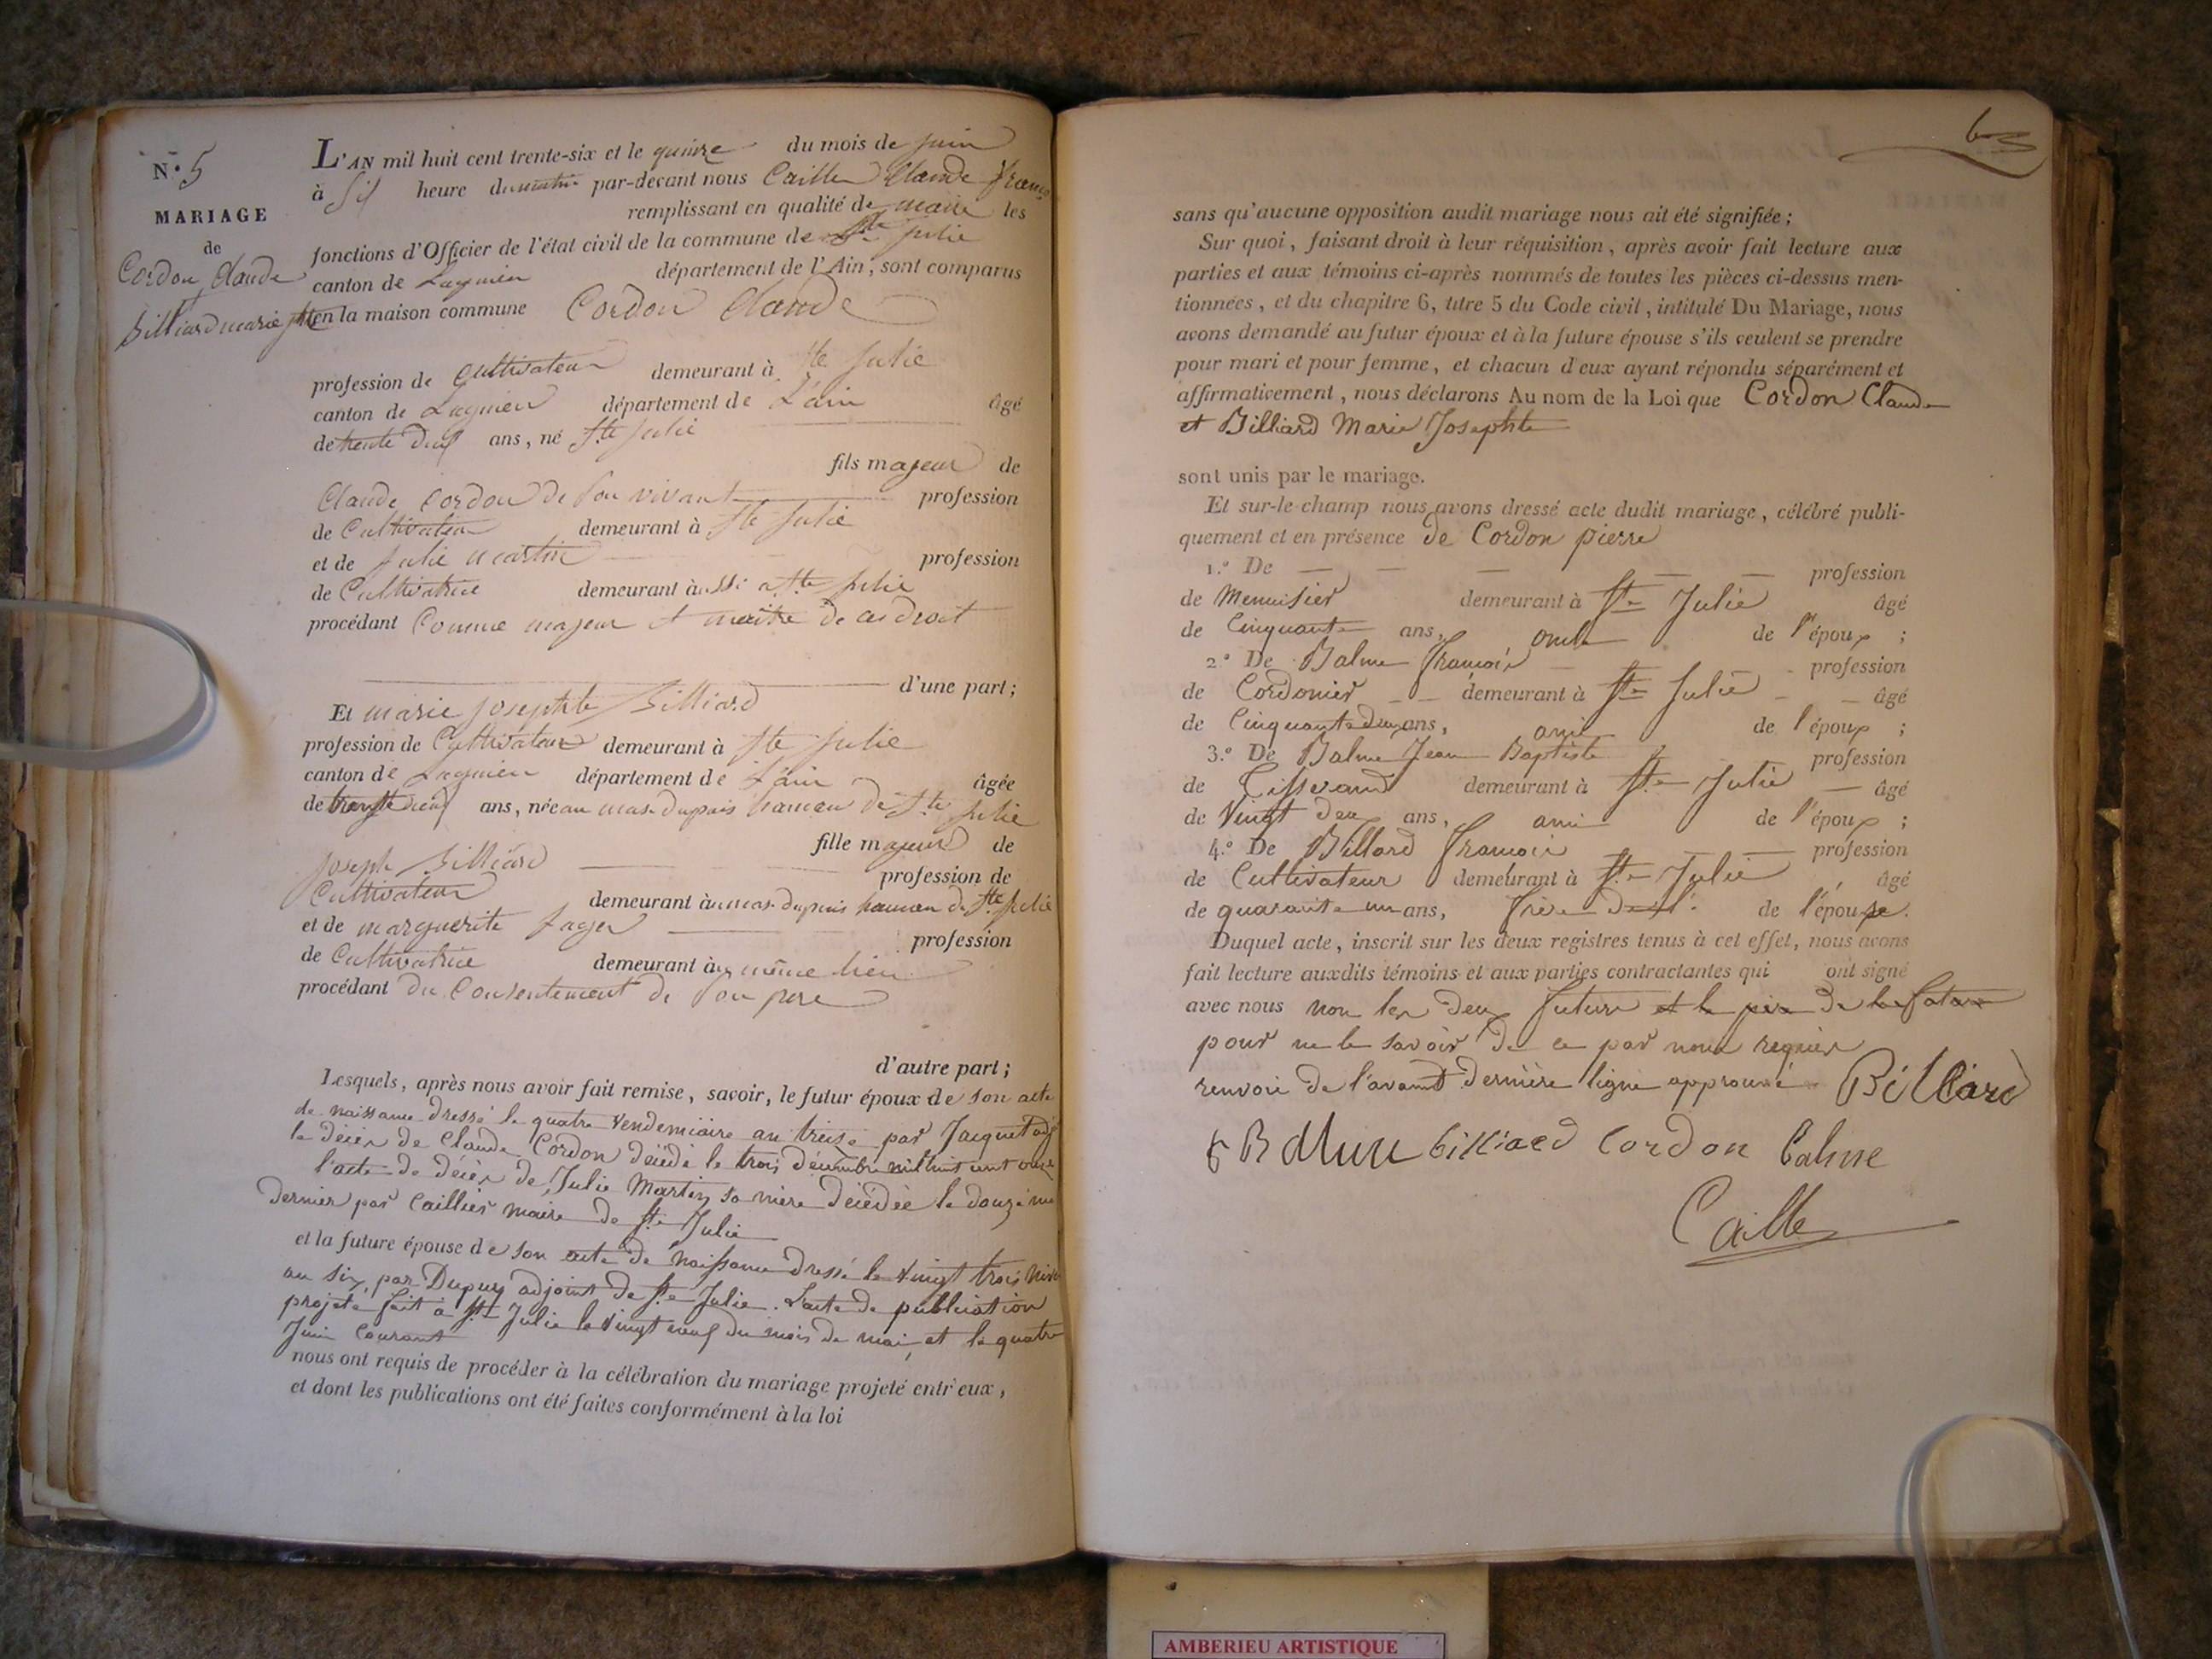 N.° 5
MARIAGE
de
Cordon Claude
Billiard marie jte
L'AN mil huit cent trente-six et le quinze du mois de juin
à six heure du matin par-devant nous Caille Claude françois
remplissant en qualité de maire les
fonctions d'Officier de l'état civil de la commune de Ste Julie
canton de Lagnieu département de l'Ain, sont comparus
en la maison commune Cordon Claude
profession de Cultivateur demeurant à Ste Julie
canton de Lagnieu département de L'ain âgé
de trente deux ans, né Ste Julie
fils majeur de
Claude Cordon de son vivant profession
de Cultivateur demeurant à Ste Julie
et de Julie martin profession
de Cultivatrice demeurant aussi a Ste Julie
procédant Comme majeur et maitre de ces droit
d'une part;
Et marie josephte Billiard
profession de Cultivateur demeurant à Ste Julie
canton de Lagnieu département de L'ain âgée
de ans, née au mas dupuis hameau de Ste Julie
fille majeur de
joseph Billiard profession de
Cultivateur demeurant au mas dupuis hameau de Ste Julie
et de marguerite profession
de Cultivatrice demeurant au même lieu
procédant du Consentement de son pere
d'autre part;
Lesquels, après nous avoir fait remise, savoir, le futur époux de son acte
de naissance dressé le quatre Vendemiaire an treize par Jacquet adj
le décès de Claude Cordon décédé le trois décembre mil huit cent onze
l'acte de décès de Julie Martin sa mère décédée le douze mai
dernier par Caillier maire de Ste Julie
et la future épouse de son acte de naissance dressé le vingt trois niv
an six, par Dupuy adjoint de Ste Julie. L'acte de publication
projeté fait à Ste Julie le vingt neuf du mois de mai, et le quatre
Juin Courant
nous ont requis de procéder à la célébration du mariage projeté entr'eux,
et dont les publications ont été faites conformément à la loi
6
sans qu'aucune opposition audit mariage nous ait été signifiée;
Sur quoi, faisant droit à leur réquisition, après avoir fait lecture aux
parties et aux témoins ci-après nommés de toutes les pièces ci-dessus men-
tionnées, et du chapitre 6, titre 5 du Code civil, intitulé Du Mariage, nous
avons demandé au futur époux et à la future épouse s'ils veulent se prendre
pour mari et pour femme, et chacun d'eux ayant répondu séparément et
affirmativement, nous déclarons Au nom de la Loi que Cordon Claude
et Billiard Marie Josephte
sont unis par le mariage.
Et sur-le-champ nous avons dressé acte dudit mariage, célébré publi-
quement et en présence de Cordon pierre
1.° De — — — — — profession
de Menuisier demeurant à Ste Julie âgé
de Cinquante ans, oncle de l'époux;
2.° De Balme françois profession
de Cordonier demeurant à Ste Julie âgé
de Cinquante deux ans, ami de l'époux;
3.° De Balme Jean Baptiste profession
de Tisserand demeurant à Ste Julie âgé
de Vingt deux ans, ami de l'époux;
4.° De Billard françois profession
de Cultivateur demeurant à Ste Julie âgé
de quarante un ans, frère de l'épouse.
Duquel acte, inscrit sur les deux registres tenus à cet effet, nous avons
fait lecture auxdits témoins et aux parties contractantes qui ont signé
avec nous non les deux future et le père de la future
pour ne le savoir de ce par nous requis
renvoie de l'avant dernière ligne approuvé Billard
billiard Cordon Balme
Caille
AMBERIEU ARTISTIQUE